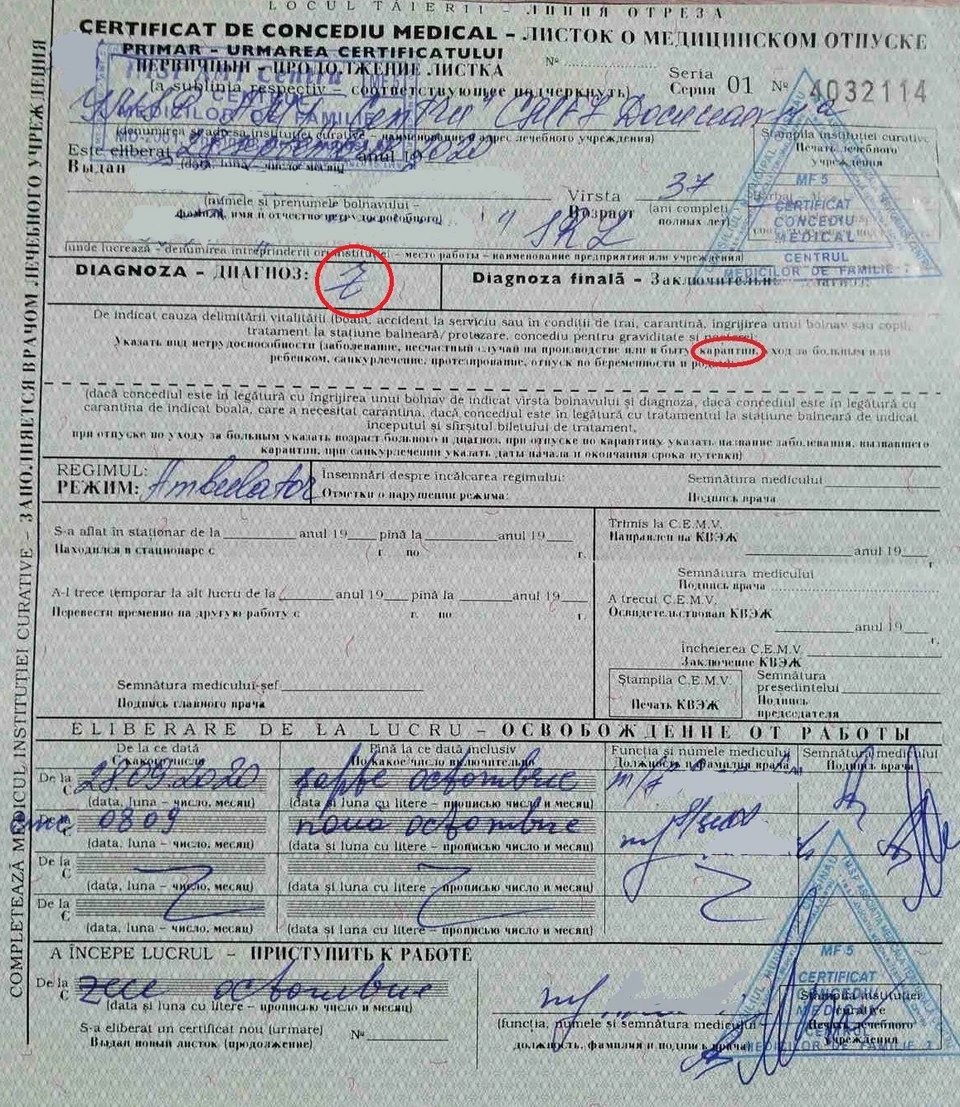 LOCUL TĂIERII - ЛИНИЯ ОТРЕЗА
CERTIFICAT DE CONCEDIU MEDICAL – ЛИСТОК О МЕДИЦИНСКОМ ОТПУСКЕ
PRIMAR - URMAREA CERTIFICATULUI
ПЕРВИЧНЫЙ - ПРОДОЛЖЕНИЕ ЛИСТКА
Nº
(a sublinia respectiv – соответствующее подчеркнуть)
Seria
Серия 01 Nº 4032114
MEDICILOR DE FAMILIE
(denumirea și adresa instituției curative – наименование и адрес лечебного учреждения)
Ștampila instituției curative
Печать лечебного учреждения
Este eliberat 2020
Выдан
anul 19
(data, luna – число, месяц)
Vîrsta 37
Возраст (ani compleți
полных лет)
(numele și prenumele bolnavului –
фамилия, имя и отчество нетрудоспособного)
" SRL
MF 5
CERTIFICAT
CONCEDIU
MEDICAL
CENTRUL
MEDICILOR DE FAMILIE 7
(unde lucrează – denumirea întreprinderii ori instituției – место работы – наименование предприятия или учреждения)
DIAGNOZA – ДИАГНОЗ: Z
Diagnoza finală – Заключительный
De indicat cauza delimitării vitalității (boala, accident la serviciu sau în condiții de trai, carantină, îngrijirea unui bolnav sau copil,
tratament la stațiune balneară/protezare, concediu pentru graviditate și naștere)
Указать вид нетрудоспособности (заболевание, несчастный случай на производстве или в быту, карантин, уход за больным или
ребенком, санкурлечение, протезирование, отпуск по беременности и родам)
(dacă concediul este în legătură cu îngrijirea unui bolnav de indicat vîrsta bolnavului și diagnoza, dacă concediul este în legătură cu
carantina de indicat boala, care a necesitat carantina, dacă concediul este în legătură cu tratamentul la stațiune balneară de indicat
începutul și sfîrșitul biletului de tratament,
при отпуске по уходу за больным указать возраст больного и диагноз, при отпуске по карантину указать название заболевания, вызвавшего
карантин, при санкурлечении указать даты начала и окончания срока путевки)
REGIMUL:
РЕЖИМ: Ambulator
Însemnări despre încălcarea regimului:
Отметки о нарушении режима:
Semnătura medicului
Подпись врача
S-a aflat în staționar de la anul 19 pînă la anul 19
Находился в стационаре с г. по г.
A-l trece temporar la alt lucru de la anul 19 pînă la anul 19
Перевести временно на другую работу с г. по г.
Semnătura medicului-șef
Подпись главного врача
Trimis la C.E.M.V.
Направлен на КВЭЖ
anul 19
г.
Semnătura medicului
Подпись врача
A trecut C.E.M.V.
Освидетельствован КВЭЖ
anul 19
г.
Încheierea C.E.M.V.
Заключение КВЭЖ
Ștampila C.E.M.V.
Печать КВЭЖ
Semnătura
președintelui
Подпись
председателя
ELIBERARE DE LA LUCRU – ОСВОБОЖДЕНИЕ ОТ РАБОТЫ
De la ce dată
С какого числа
Pînă la ce dată inclusiv
По какое число включительно
Funcția și numele medicului
Должность и фамилия врача
Semnătura medicului
Подпись врача
De la
С 28.09.2020 șapte octombrie m/f
(data, luna – число, месяц) (data și luna cu litere – прописью число и месяц)
De la
С 0809 nouă octombrie
(data, luna – число, месяц) (data și luna cu litere – прописью число и месяц)
De la
С
(data, luna – число, месяц) (data și luna cu litere – прописью число и месяц)
De la
С
(data, luna – число, месяц) (data și luna cu litere – прописью число и месяц)
A ÎNCEPE LUCRUL – ПРИСТУПИТЬ К РАБОТЕ
De la
С zece octombrie
(data și luna cu litere – прописью число и месяц)
S-a eliberat un certificat nou (urmare) Nº
Выдан новый листок (продолжение)
(funcția, numele și semnătura medicului –
должность, фамилия и подпись врача)
MF 5
CERTIFICAT
CONCEDIU
MEDICAL
CENTRUL
MEDICILOR DE FAMILIE 7
Ștampila instituției
curative
Печать лечебного
учреждения
COMPLETEAZĂ MEDICUL INSTITUȚIEI CURATIVE – ЗАПОЛНЯЕТСЯ ВРАЧОМ ЛЕЧЕБНОГО УЧРЕЖДЕНИЯ